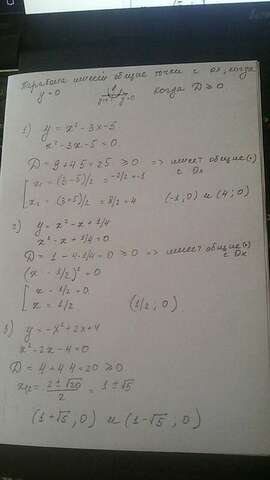 Парабола имеет общие точки с ох, когда
y=0 y=0 y=0 когда D ≥ 0
1) y = x² - 3x - 5
x² - 3x - 5 = 0
D = 9 + 4·5 = 25 ≥ 0 => имеет общие (·)
с Ox
x₁ = (3-5)/2 = -2/2 = -1
x₂ = (3+5)/2 = 8/2 = 4 (-1; 0) и (4; 0)
2) y = x² - x + 1/4
x² - x + 1/4 = 0
D = 1 - 4·1/4 = 0 ≥ 0 => имеет общие (·)
с Ox
(x - 1/2)² = 0
x - 1/2 = 0
x = 1/2 (1/2 ; 0)
3) y = -x² + 2x + 4
x² - 2x - 4 = 0
D = 4 + 4·4 = 20 ≥ 0
x₁,₂ = 2 ± √20 / 2 = 1 ± √5
(1+√5 ; 0) и (1-√5 ; 0)